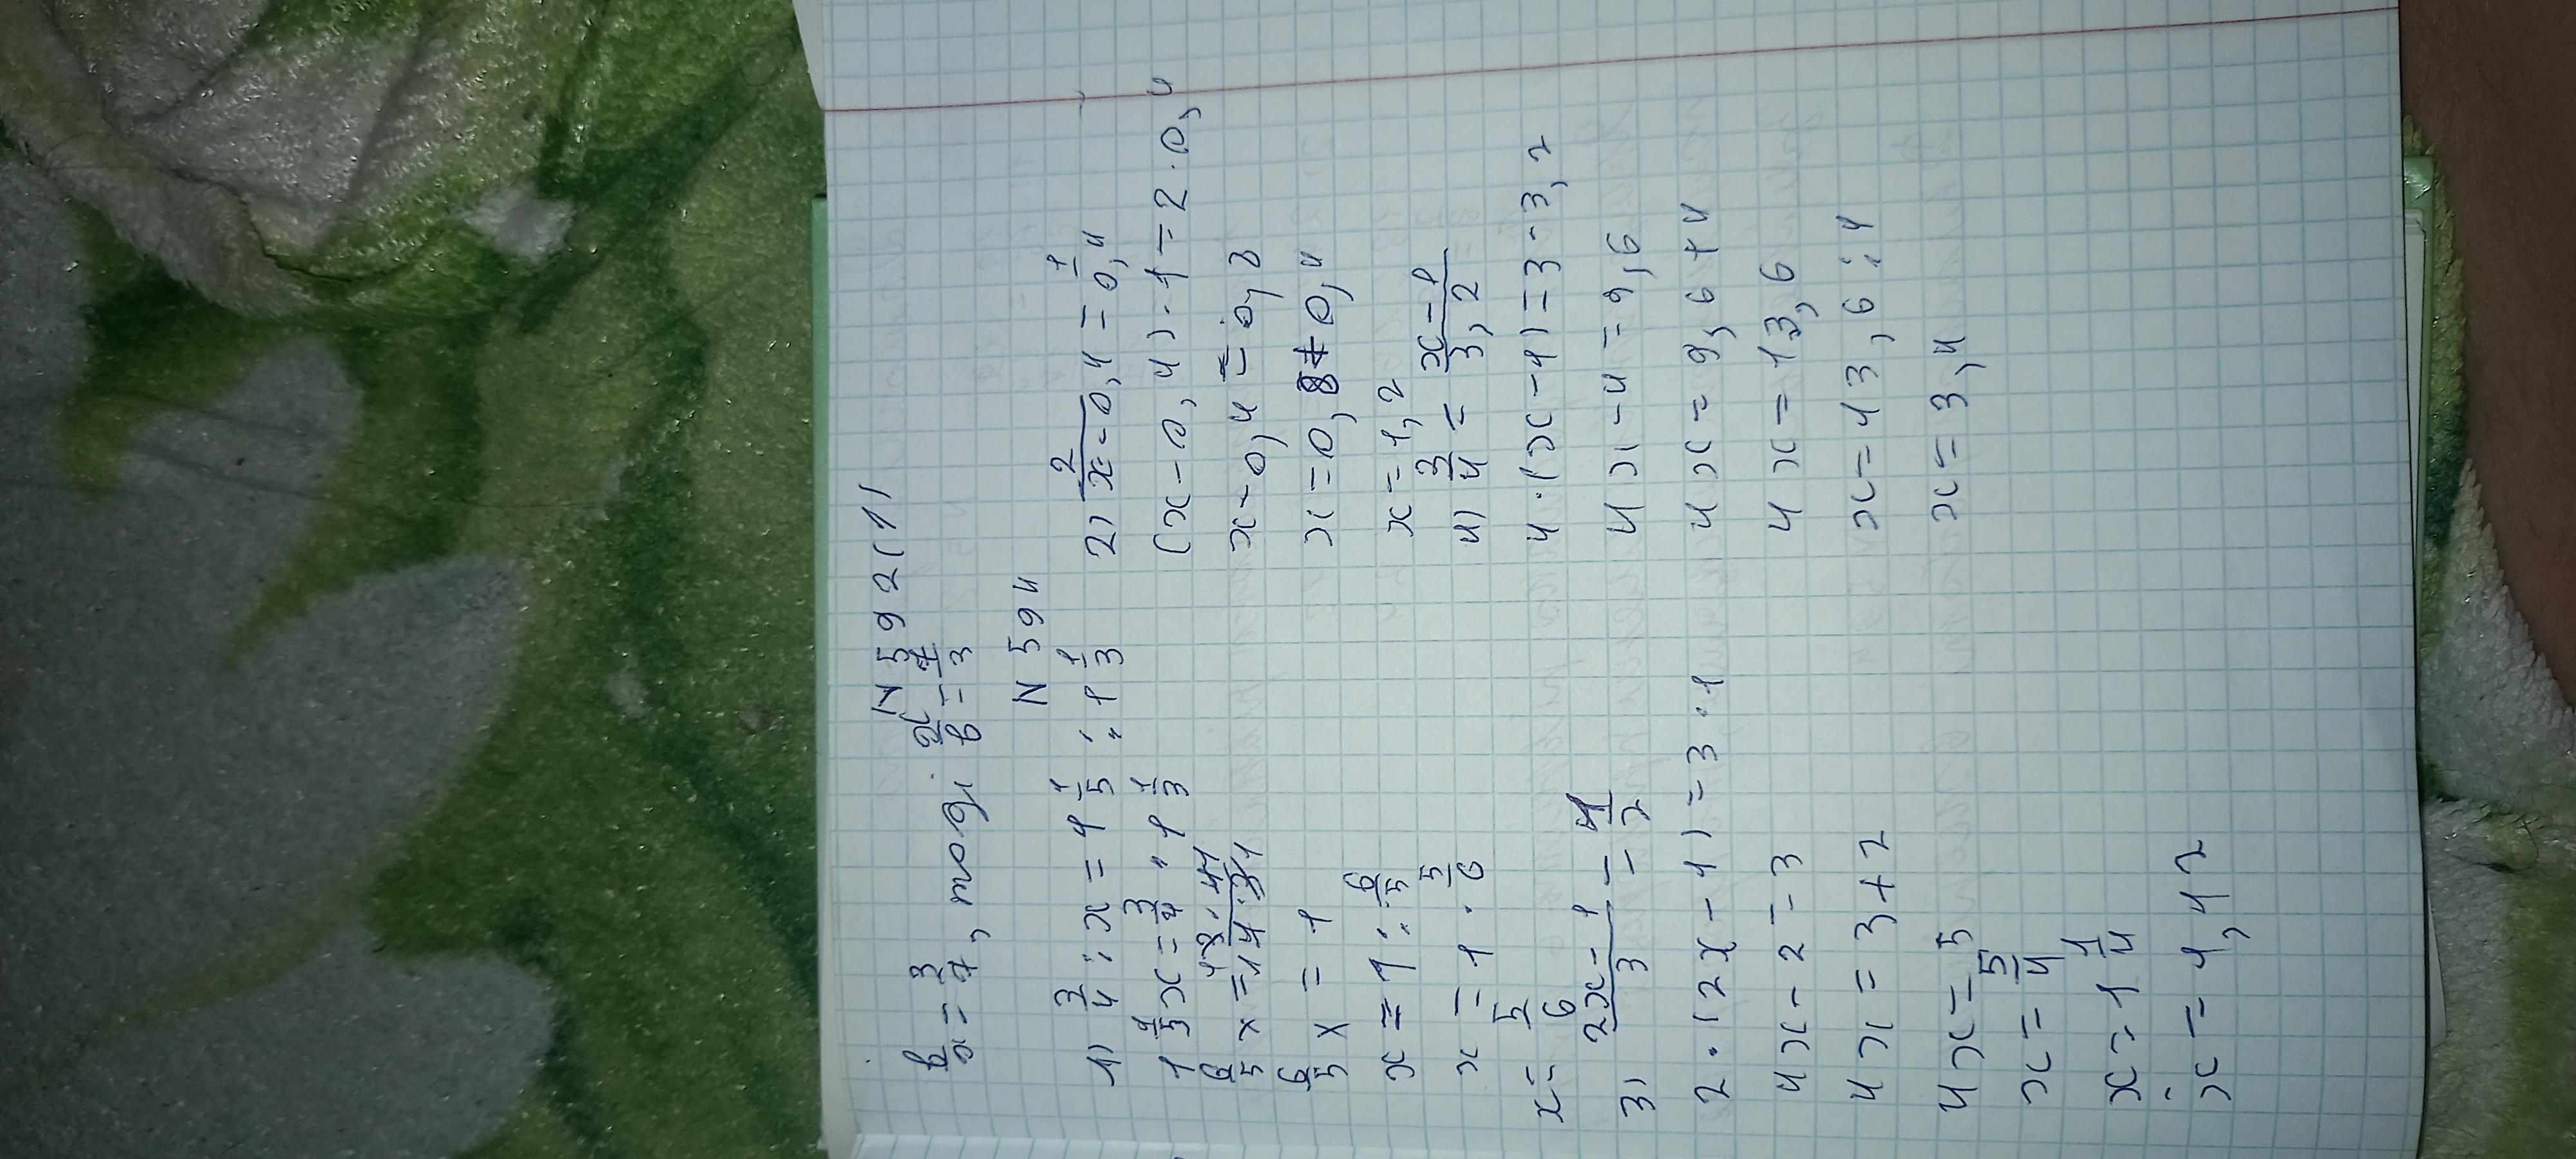 N 592(1)
b/x = 3/7, тоді x/b = 7/3
N 594
1) 3/4 : x = 1 1/5 : 1 1/3
1 1/5 x = 3/4 · 1 1/3
6/5 x = 3·4/4·3
6/5 x = 1
x = 1 : 6/5
x = 1 · 5/6
x = 5/6
3) 2x-1/3 = 1/2
2·(2x-1) = 3·1
4x-2=3
4x=3+2
4x=5
x=5/4
x=1 1/4
x=1,42
2) 2/x-0,4 = 1/0,4
(x-0,4)·1=2·0,4
x-0,4=0,8
x=0,8+0,4
x=1,2
4) 3/4 = x-1/3,2
4·(x-1)=3·3,2
4x-4=9,6
4x=9,6+4
4x=13,6
x=13,6:4
x=3,4